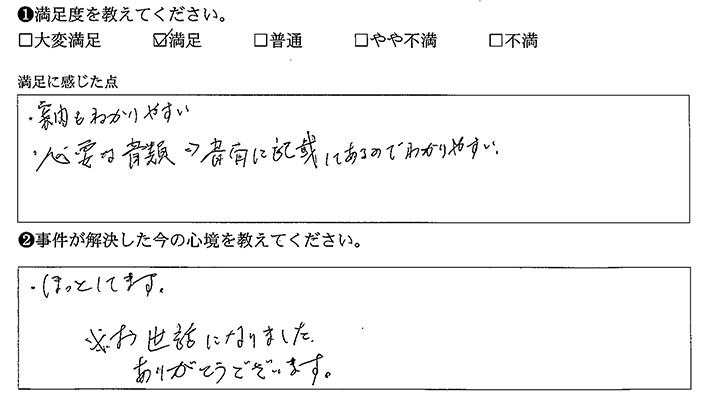 ❶満足度を教えてください。
□大変満足 ☑満足 □普通 □やや不満 □不満
満足に感じた点
・案内もわかりやすい
・必要な書類⇒書面に記載してあるのでわかりやすい。
❷事件が解決した今の心境を教えてください。
・ほっとしてます。
※お世話になりました。
ありがとうございます。